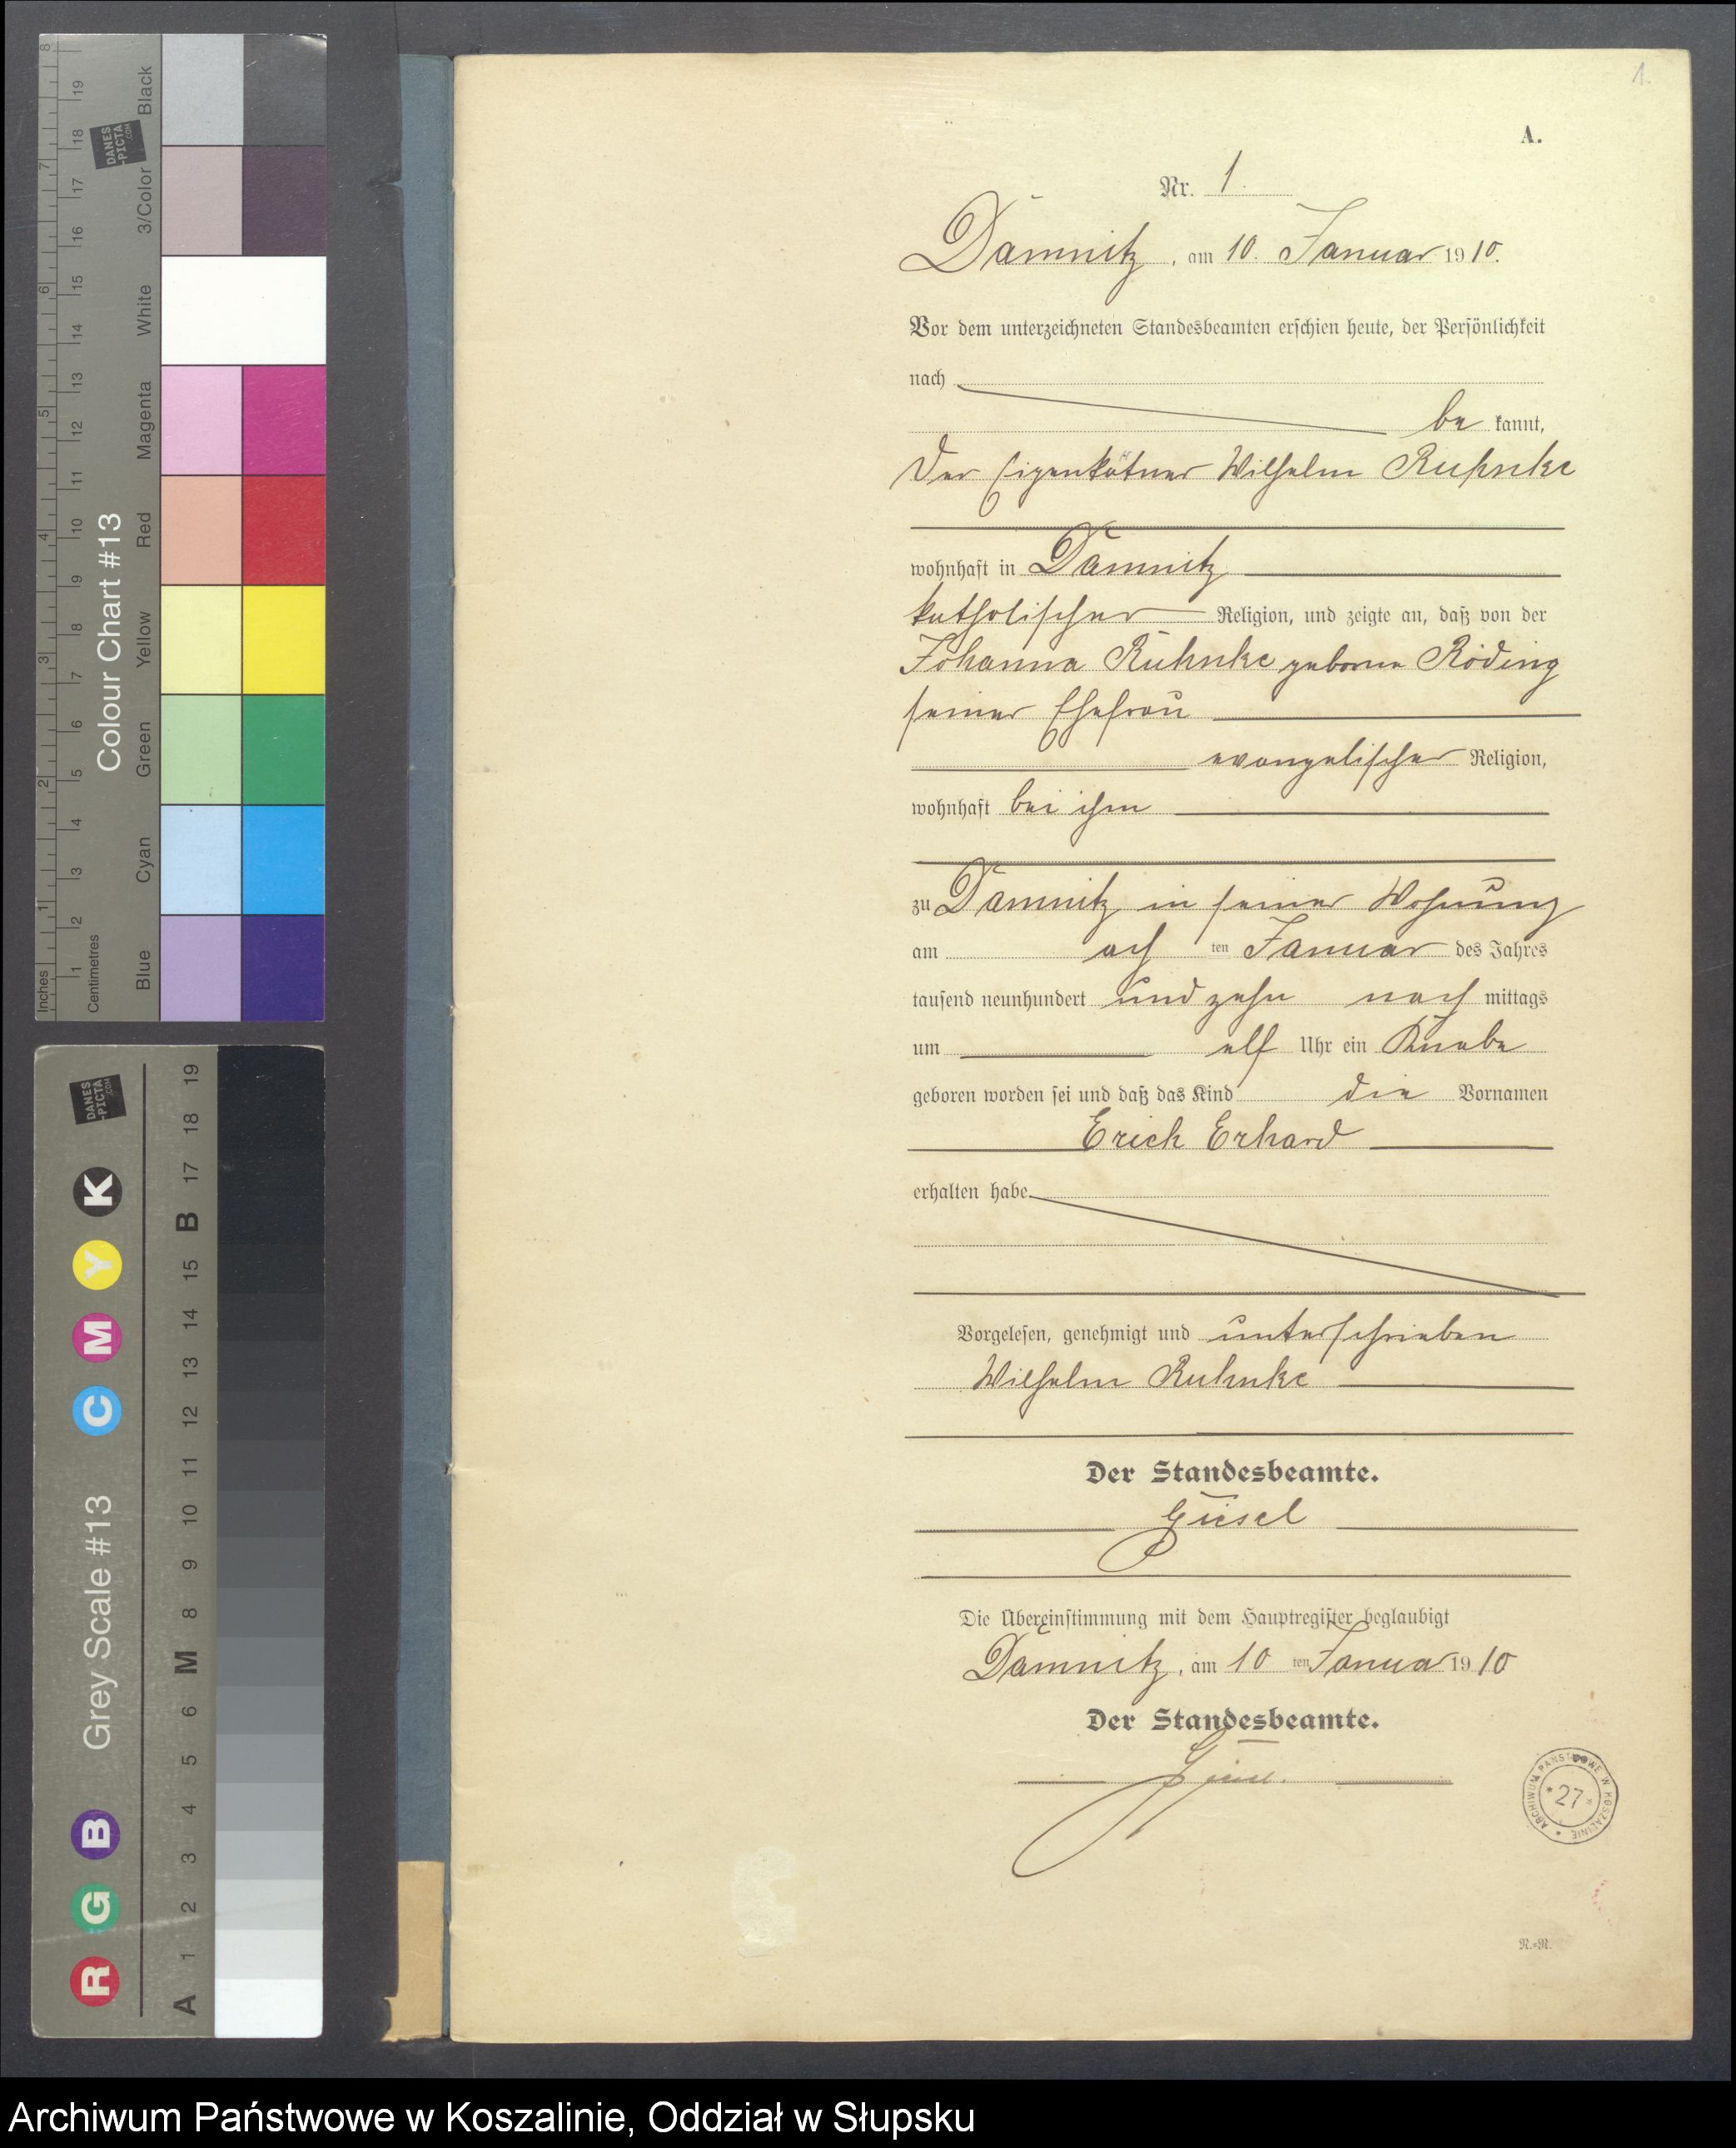 1.
A.
Nr. 1.
Damnitz, am 10. Januar 1910.
Vor dem unterzeichneten Standesbeamten erschien heute, der Persönlichkeit
nach
be kannt,
der Eigenkätner Wilhelm Ruhnke
wohnhaft in Damnitz
katholischer Religion, und zeigte an, daß von der
Johanna Ruhnke geborene Röding
seiner Ehefrau
evangelischer Religion,
wohnhaft bei ihm
zu Damnitz in seiner Wohnung
am ach ten Januar des Jahres
tausend neunhundert und zehn nach mittags
um elf Uhr ein Knabe
geboren worden sei und daß das Kind die Vornamen
Erich Erhard
erhalten habe
Vorgelesen, genehmigt und unterschrieben
Wilhelm Ruhnke
Der Standesbeamte.
Giesel
Die Übereinstimmung mit dem Hauptregister beglaubigt
Damnitz, am 10 ten Januar 1910
Der Standesbeamte.
Giesel.
ARCHIWUM PAŃSTWOWE W KOSZALINIE
* 27 *
R.=R.
Inches 1 2 3 4 5 6 7 8
Centimetres 1 2 3 4 5 6 7 8 9 10 11 12 13 14 15 16 17 18 19
Colour Chart #13
Blue Cyan Green Yellow Red Magenta White 3/Color Black
DANES
-PICTA
.COM
Grey Scale #13
R G B C M Y K
A 1 2 3 4 5 6 M 8 9 10 11 12 13 14 15 B 17 18 19
DANES
-PICTA
.COM
Archiwum Państwowe w Koszalinie, Oddział w Słupsku